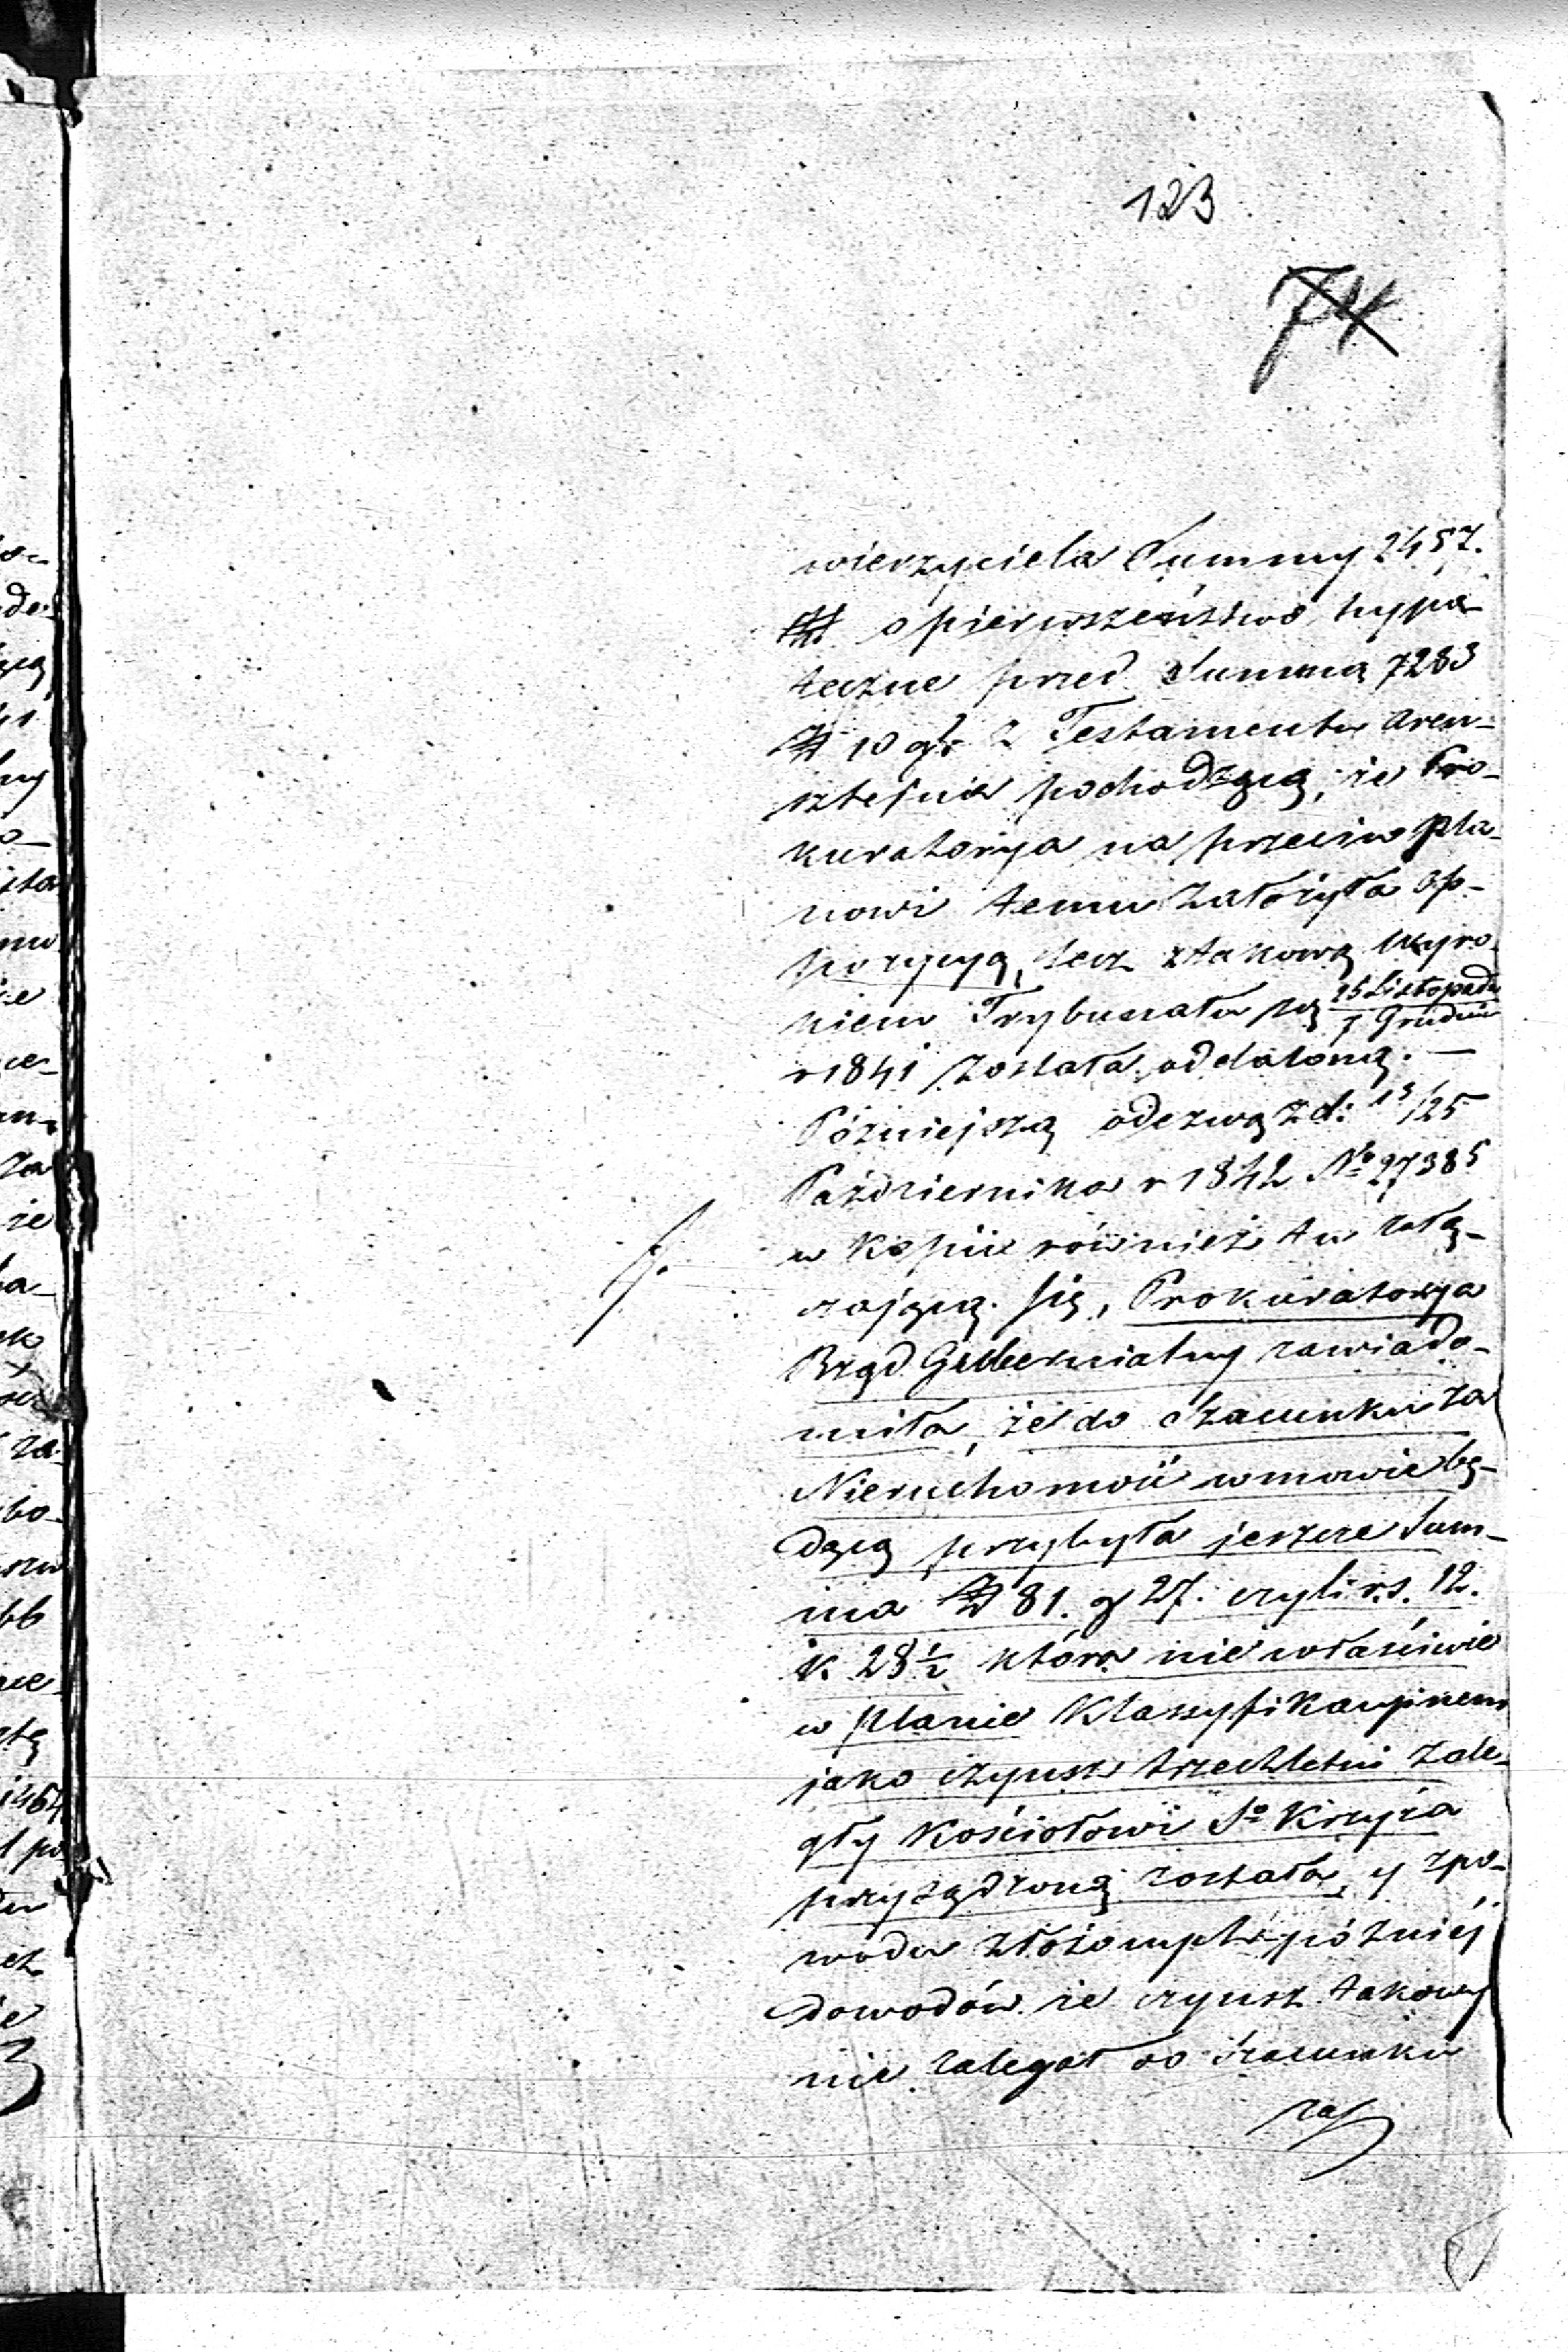 123
74
wierzyciela Summy 2457.
zł. o pierwszeństwo hypo-
teczne przed Summą 7283
zł 10 gr z Testamentu Aren-
sztejna pochodzącą, że Pro-
kuratorya na przeciw pla-
nowi temu założyła op-
pozycyą, lecz z takową wyro-
kiem Trybunału pq 25 Listopada / 7 Grudnia
r 1841 została oddaloną. —
Późniejszą odezwą z d: 13/25
Października r 1842 No 27385
w kopii również tu załą-
czającą się, Prokuratorya
Rząd Gubernialny zawiado-
miła, że do szacunku za
Nieruchomość w mowie bę-
dącą przybyła jeszcze Sum-
ma zł 81. g 27. czyli r.s. 12.
k. 28½ która nie właściwie
w planie Klassyfikacyjnem
jako czynsz trzechletni zale-
gły Kościołowi So Krzyża
przysądzoną została, y z po-
wodu złożonych później
dowodów że czynsz takowy
nie zalegał do szacunku
za